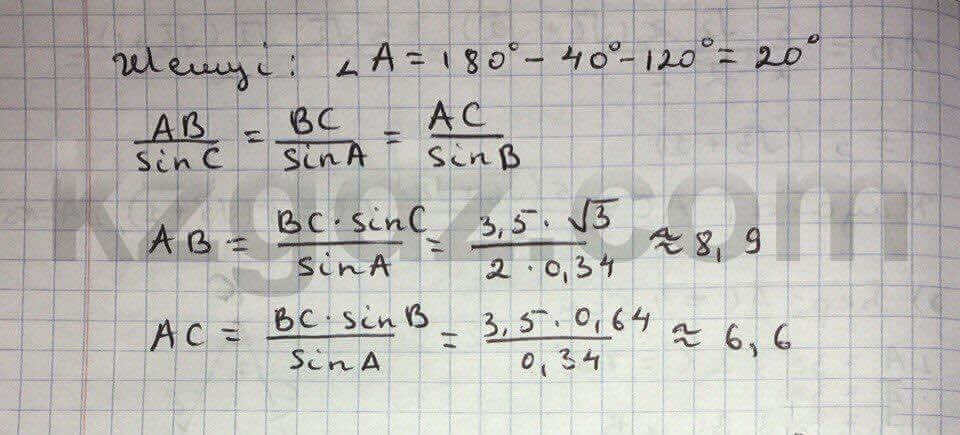 Шешуі: ∠A = 180° - 40° - 120° = 20°
AB/sinC = BC/sinA = AC/sinB
AB = BC·sinC/sinA = 3,5·√3/2·0,34 ≈ 8,9
AC = BC·sinB/sinA = 3,5·0,64/0,34 ≈ 6,6
kzgdz.com